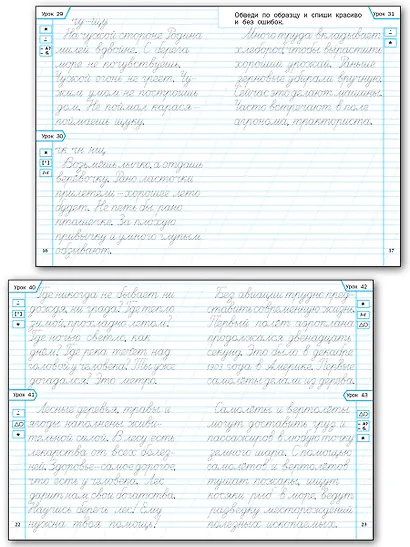 Урок 29
чу-щу
На чужой стороне Родина
милей вдвойне. С берега
море не почувствуешь.
Чужой огонь не греет. Чу-
жим умом не построишь
дом. Не поймал карася –
поймаешь щуку.
Урок 30
чк чн нщ
Возьмёшь лычко, а отдашь
верёвочку. Рано ласточки
прилетели – хорошее лето
будет. Не петь бы рано
пташечке. За плохую
привычку и умного глупым
обзывают.
16
Обведи по образцу и спиши красиво
и без ошибок.
Урок 31
Много труда вкладывает
хлебороб, чтобы вырастить
хороший урожай. Раньше
зерновые убирали вручную.
Сейчас это делают машины.
Часто встречают в поле
агронома, тракториста.
17
Урок 40
Где никогда не бывает ни
дождя, ни града? Где тепло
зимой, прохладно летом?
Где ночью светло, как
днём? Где река течёт над
головой у человека? Ты уже
догадался? Это метро.
Урок 41
Лесные деревья, травы и
ягоды наполнены живи-
тельной силой. В лесу есть
лекарства от всех болез-
ней. Здоровье – самое дорогое,
что есть у человека. Лес
дарит нам свои богатства.
Научись беречь лес! Ему
нужна твоя помощь!
22
Урок 42
Без авиации трудно пред-
ставить современную жизнь.
Первый полёт аэроплана
продолжался двенадцать
секунд. Это было в декабре
1903 года в Америке. Первые
самолёты делали из дерева.
Урок 43
Самолёты и вертолёты
могут доставить груз и
пассажиров в любую точку
земного шара. С помощью
самолётов и вертолётов
тушат пожары, ищут
косяки рыб в море, ведут
разведку месторождений
полезных ископаемых.
23